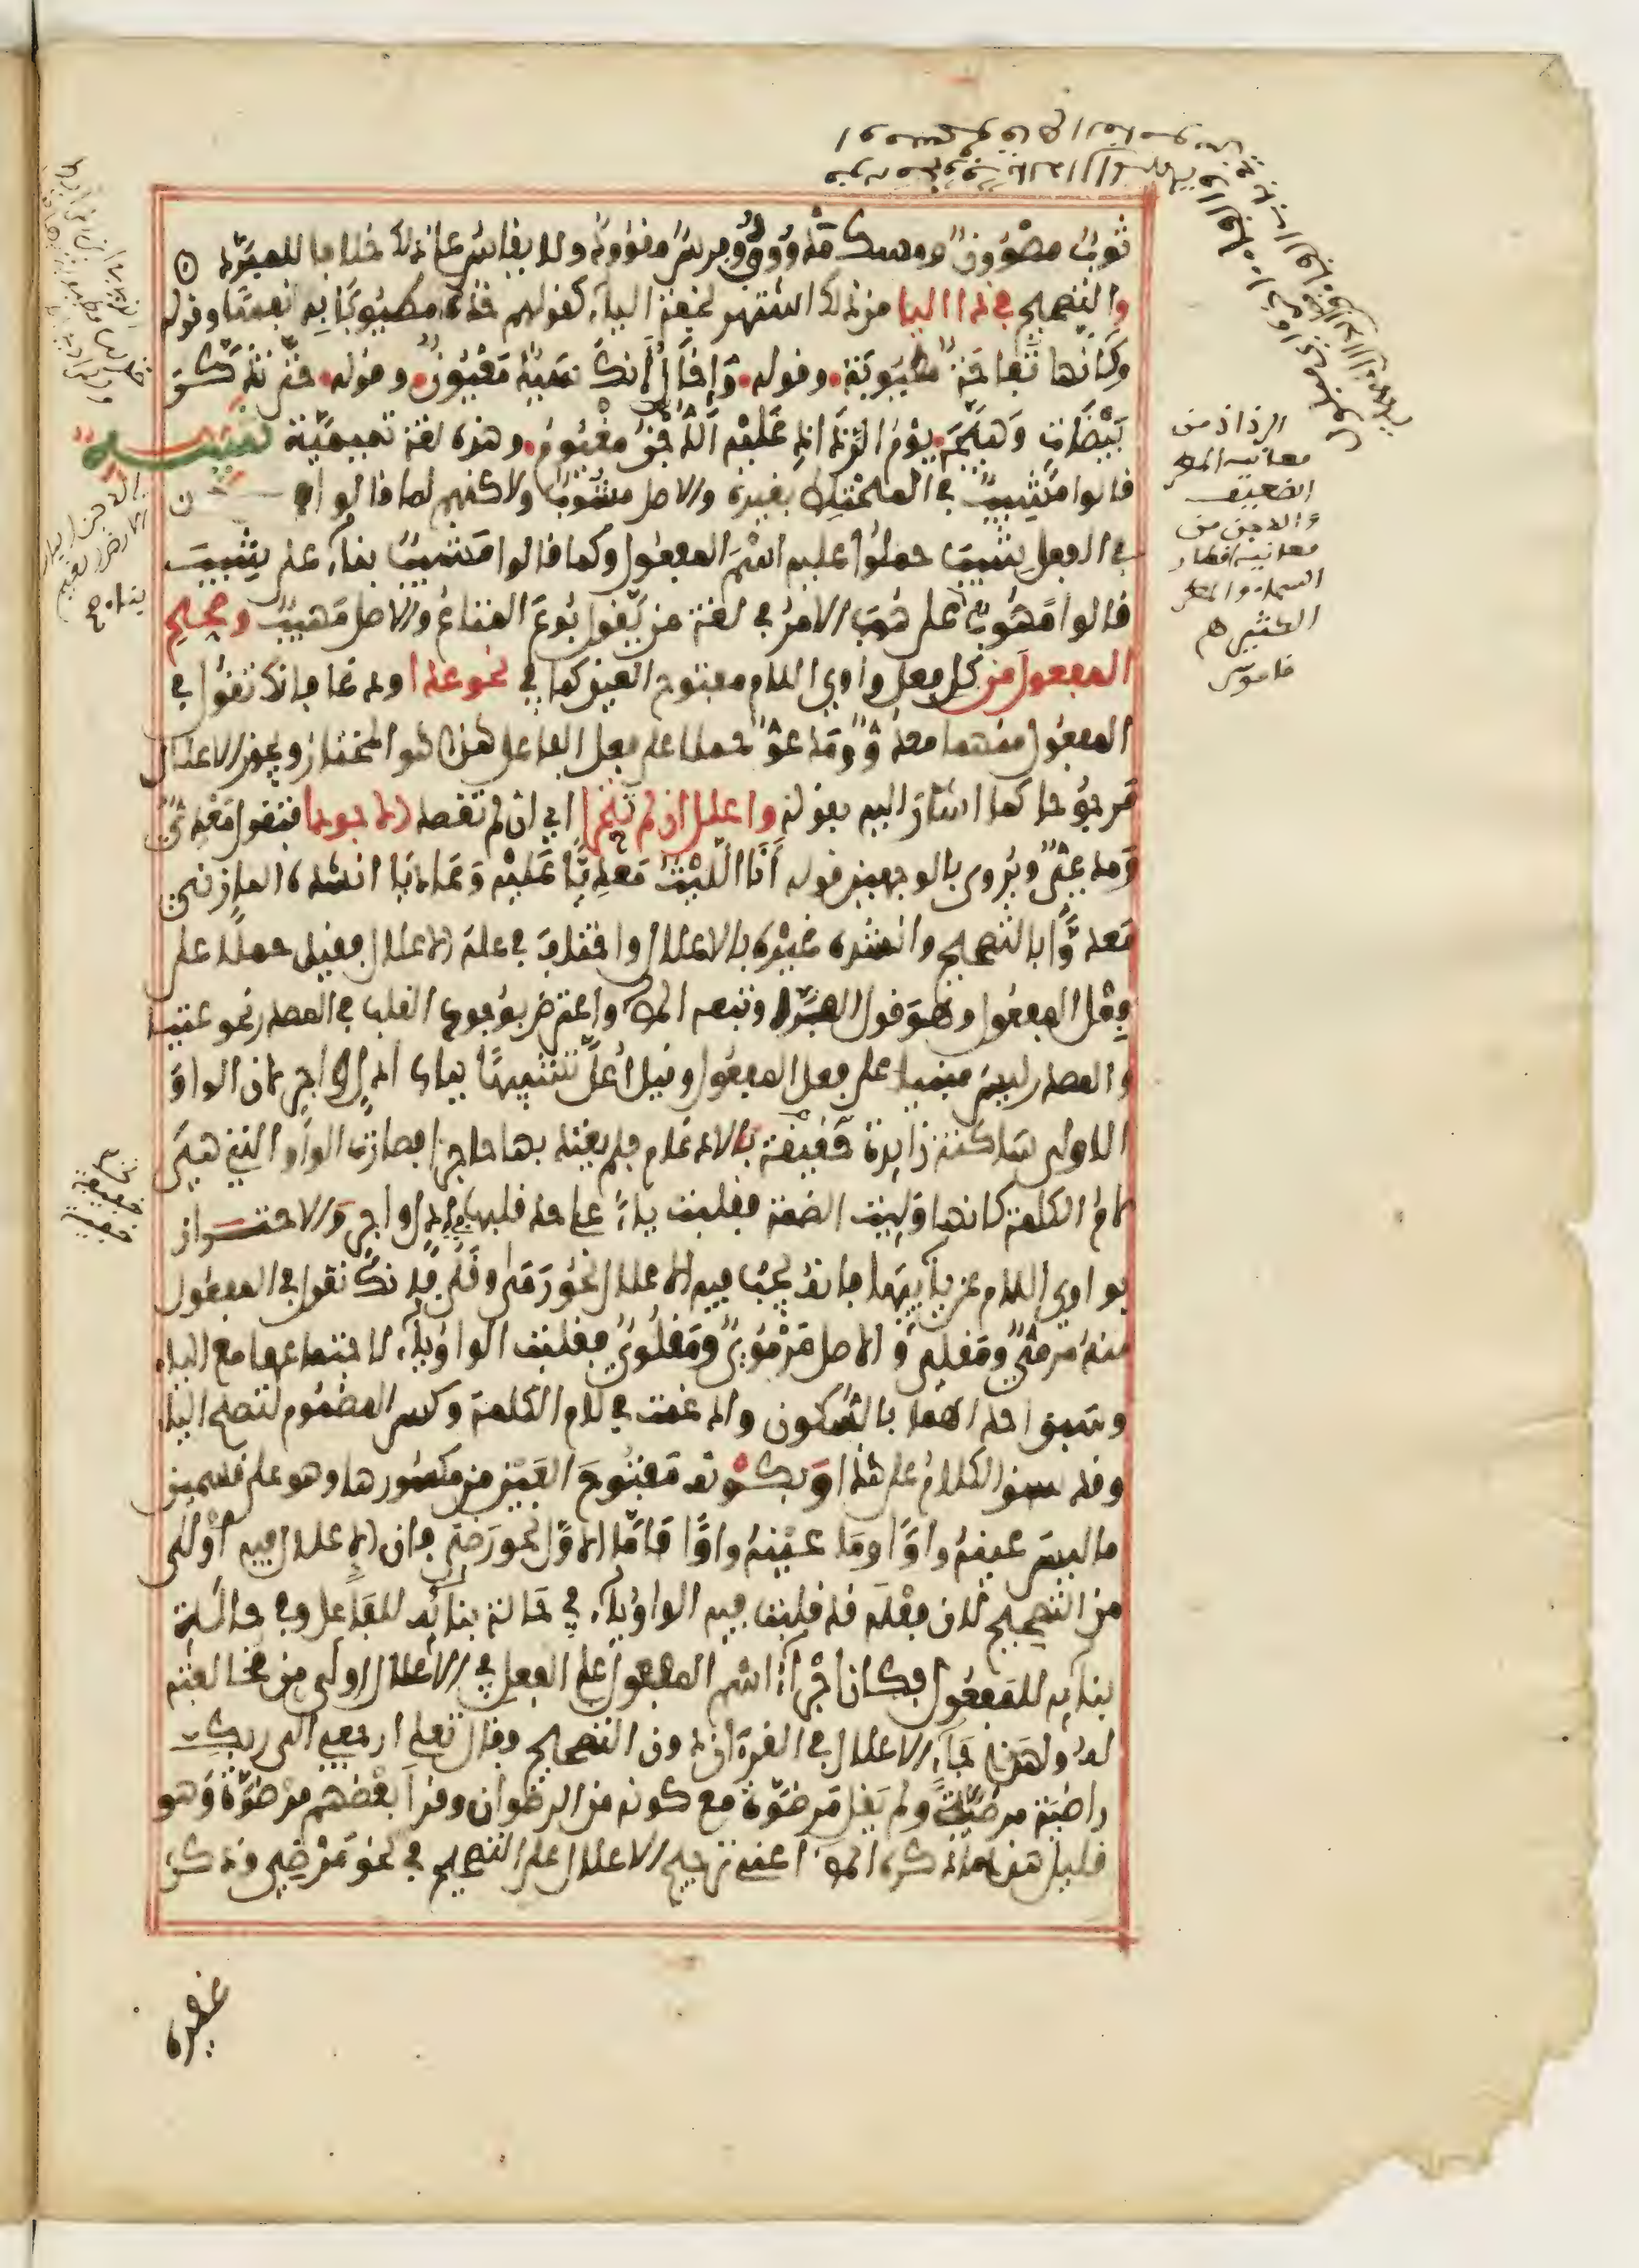 ثوب مصوون ومسك مدووف وفرس مقوود ولا يقاس على ذلك خلافا للمبرد
والتصحيح في ذا اليا من ذلك اشتهر لخفة الياء كقولهم خذه مطيوبة به نفسا وقوله
وكأنها تفاحة مطيوبة وقوله وإخال أنك سيد مغيون وقوله حتى تذكر
بيضات وهيجه يوم الرذاذ عليه الدجن مغيوم وهذه لغة تميمية تنبيه
قالوا مشيب في المختلط بغيره والاصل مشوب ولاكنهم لما قالوا
في الفعل شيب حملوا عليه اسم المفعول وكما قالوا مشيب بناء على شيب
قالوا مهوب على هوب الامر في لغة من يقول بوع المتاع والاصل مهيب وصحح
المفعول من كل فعل واوي اللام مفتوح العين كما في نحو عدا ودعا فانك تقول في
المفعول منهما معدو ومدعو حملا على فعل الفاعل هذا هو المختار ويجوز الاعلال
مرجوحا كما اشار اليه بقوله واعلل ان لم تتحر اي ان لم تقصد الاجودا فتقول معدي
ومدعي ويروى بالوجهين قوله أنا الليث معديا عليه وعاديا انشده المازني
معدوا بالتصحيح وانشده غيره بالاعلال واختلف في علة الاعلال فقيل حملا على
فعل المفعول وهو قول الفراء وتبعه المص واعترض بوجود القلب في المصدر نحو عتيا
والمصدر ليس مبنيا على فعل المفعول وقيل أعل تشبيها بباب ادل واجر لان الواو
الاولى ساكنة زايدة خفيفة بالادغام فلم يعتد بها حاجزا فصارت الواو التي هي
لام الكلمة كانها وليت الضمة فقلبت ياء على حد قلبها في ادل واجر والاحتراز
بواوي اللام عن يائيها فانه يجب فيه الاعلال نحو رمى وقلى فانك تقول في المفعول
منه مرمي ومقلي والاصل مرموي ومقلوي فقلبت الواو ياء لاجتماعها مع الياء
وسبق احداهما بالسكون وادغمت في لام الكلمة وكسر المضموم لتصح الياء
وقد سبق الكلام على هذا وبكونه مفتوح العين من مكسورها وهو على قسمين
ما ليس عينه واوا وما عينه واوا فاما الاول نحو رضي فان الاعلال فيه أولى
من التصحيح لان فعله قد قلبت فيه الواو ياء في حالة بنائه للفاعل وفي حالة
بنائه للمفعول فكان اجراء اسم المفعول على الفعل في الاعلال اولى من مخالفته
له ولهذا جاء الاعلال في القرءان دون التصحيح وقال تعلى ارجعي الى ربك
راضية مرضية ولم يقل مرضوة مع كونه من الرضوان وقرأ بعضهم مرضوة وهو
قليل هذا ما ذكره المص اعني ترجيح الاعلال على التصحيح في نحو مرضي وذكر
غيره
الرذاذ من
معانيه المطر
الضعيف
والدجن من
معانيه اقطار
السماء والمطر
الكثير ه
قاموس